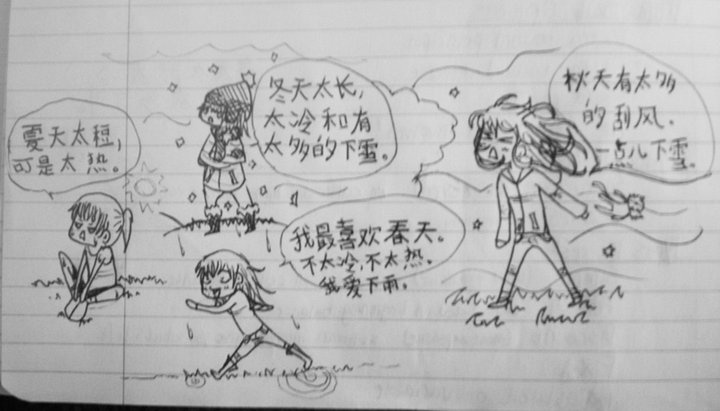 夏天太短,
可是太热。
冬天太长,
太冷和有
太多的下雪。
秋天有太多
的刮风。
一点儿下雪。
我最喜欢春天。
不太冷,不太热。
我爱下雨。